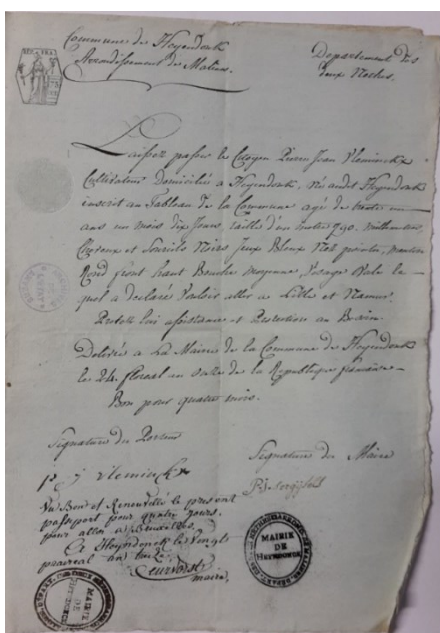 REP. FRA.
Commune de Heyendonk
Arrondissement de Malines.
Departement des
deux Nethes.
Laissez passer le Citoyen Pierre Jean Vleminckx
Cultivateur Domicilié a Heyendonk, Né audit Heyendonk
inscrit au Tableau de la Commune agé de trente un
ans un mois dix Jours, taille d'un metre 790. millimetres,
Cheveux et Sourcils Noirs Jeux Bleux Nez pointu, menton
Rond front haut Bouche moyenne, Visage Vale le
quel a declaré Vouloir aller a Lille et Namur.
Pretéz lui assistance et Protection au Besoin.
Delivré a La Mairie de la Commune de Heyendonk
le 24. floreal an de la Republique francaise
Bon pour quatre mois.
Signature du Porteur
Signature du Maire
p. j vleminckx
Vu Bon et Renouvellé le present
passeport pour quatre jours.
pour aller a Bruxelles.
A Heyndonck le Vingt
praireal an
maire.
MAIRIE
DE
HEYNDONCK
MAIRIE
DE